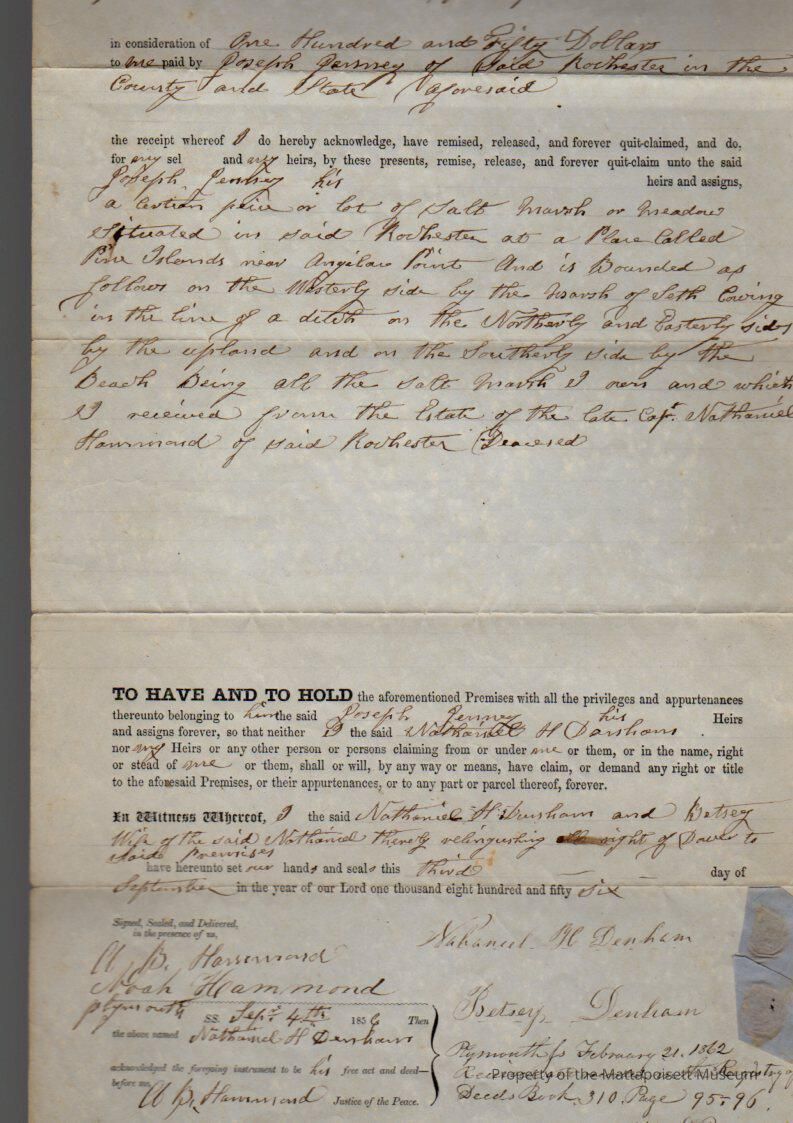 in consideration of One Hundred and Fifty Dollars
to me paid by Joseph Jenney of Said Rochester in the
County and State aforesaid
the receipt whereof I do hereby acknowledge, have remised, released, and forever quit-claimed, and do,
for my sel and my heirs, by these presents, remise, release, and forever quit-claim unto the said
Joseph Jenney his heirs and assigns,
a Certain peice or lot of Salt Marsh or Meadow
Situated in said Rochester at a Place Called
Pine Islands near Angelaco Point And is Bounded as
follows on the Westerly side by the Marsh of Seth Cowing
in the line of a ditch on the Northerly and Easterly sides
by the upland and on the Southerly side by the
Beach Being all the Salt Marsh I own and which
I received from the Estate of the late Capt. Nathaniel
Hammond of said Rochester Deacesed
TO HAVE AND TO HOLD the aforementioned Premises with all the privileges and appurtenances
thereunto belonging to him the said Joseph Jenney his Heirs
and assigns forever, so that neither I the said Nathaniel H Denham
nor my Heirs or any other person or persons claiming from or under me or them, or in the name, right
or stead of me or them, shall or will, by any way or means, have claim, or demand any right or title
to the aforesaid Premises, or their appurtenances, or to any part or parcel thereof, forever.
In Witness Whereof, I the said Nathaniel H Denham and Betsey
Wife of the said Nathaniel thereby relinquishing right of Dower to
Said Premises
have hereunto set our hands and seals this third day of
September in the year of our Lord one thousand eight hundred and fifty six
Signed, Sealed, and Delivered,
in the presence of us,
A B. Hammond
Noah Hammond
Nathaniel H Denham
Betsey Denham
Plymouth SS. Sept. 4th 1856 Then
the above named Nathaniel H Denham
acknowledged the foregoing instrument to be his free act and deed—
before me,
A B. Hammond Justice of the Peace.
Plymouth ss February 21. 1862
Registry of
Deeds Book 310. Page 95-96.
Property of the Mattapoisett Museum